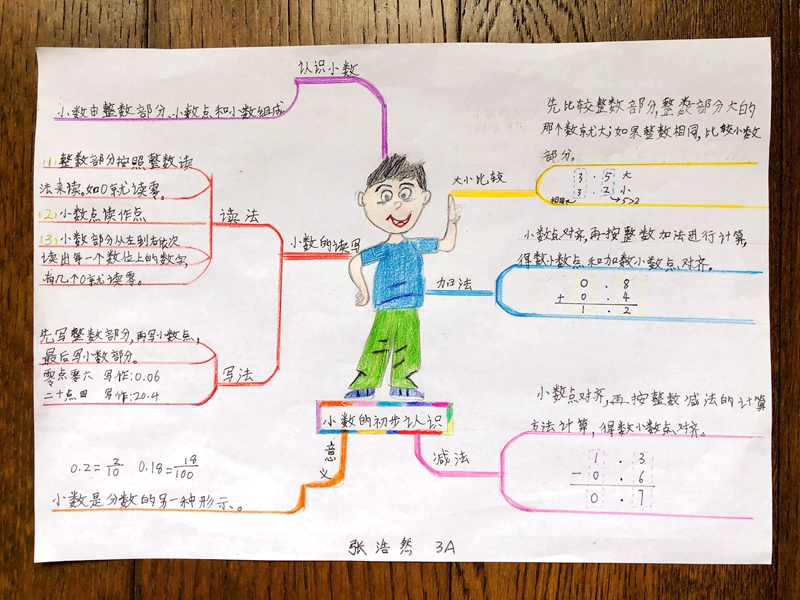 认识小数
小数由整数部分、小数点和小数组成
小数的读写
读法
(1)整数部分按照整数读
法来读,如0就读零。
(2)小数点读作点
(3)小数部分从左到右依次
读出每一个数位上的数字,
有几个0就读零。
写法
先写整数部分,再写小数点,
最后写小数部分。
零点零六 写作:0.06
二十点四 写作:20.4
小数的初步认识
意义
0.2=2/10 0.18=18/100
小数是分数的另一种形示、。
大小比较
先比较整数部分,整数部分大的
那个数就大;如果整数相同,比较小数
部分。
3.5 大
3.2 小
相同 5>2
加法
小数点对齐,再按整数加法进行计算,
得数小数点和加数小数点对齐。
0.8
+ 0.4
1.2
减法
小数点对齐,再按整数减法的计算
方法计算,得数小数点对齐。
1.3
- 0.6
0.7
张浩然 3A